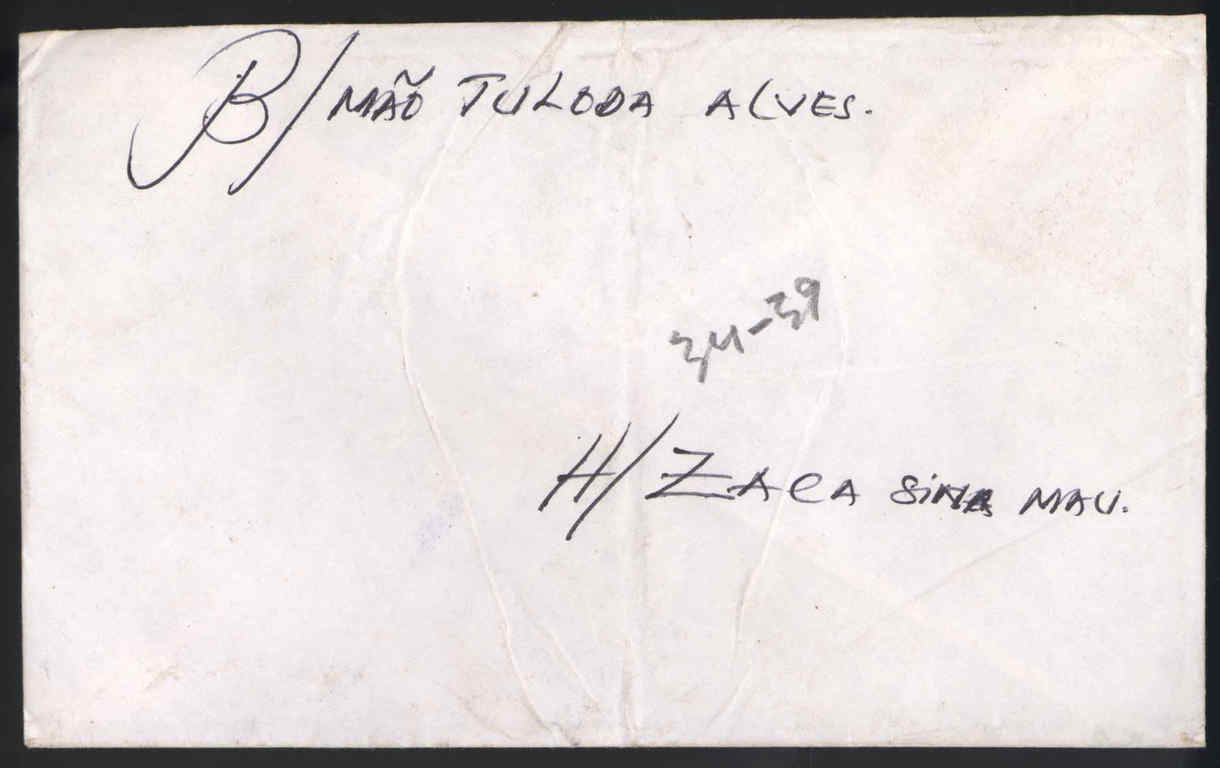 B/ MÃO TULODA ALVES.
34-39
H/ ZACA SINA MAU.